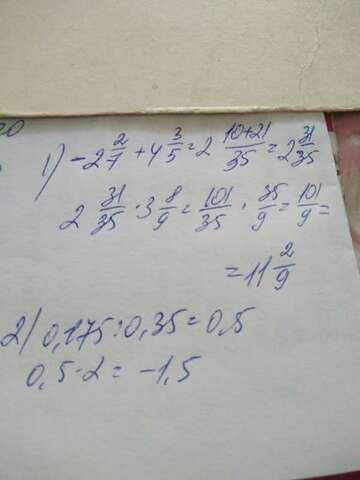 20
1) -2 2/7 + 4 3/5 = 2 (10+21)/35 = 2 31/35
2 31/35 · 3 8/9 = 101/35 · 35/9 = 101/9 =
= 11 2/9
2) 0,175 : 0,35 = 0,5
0,5 - 2 = -1,5